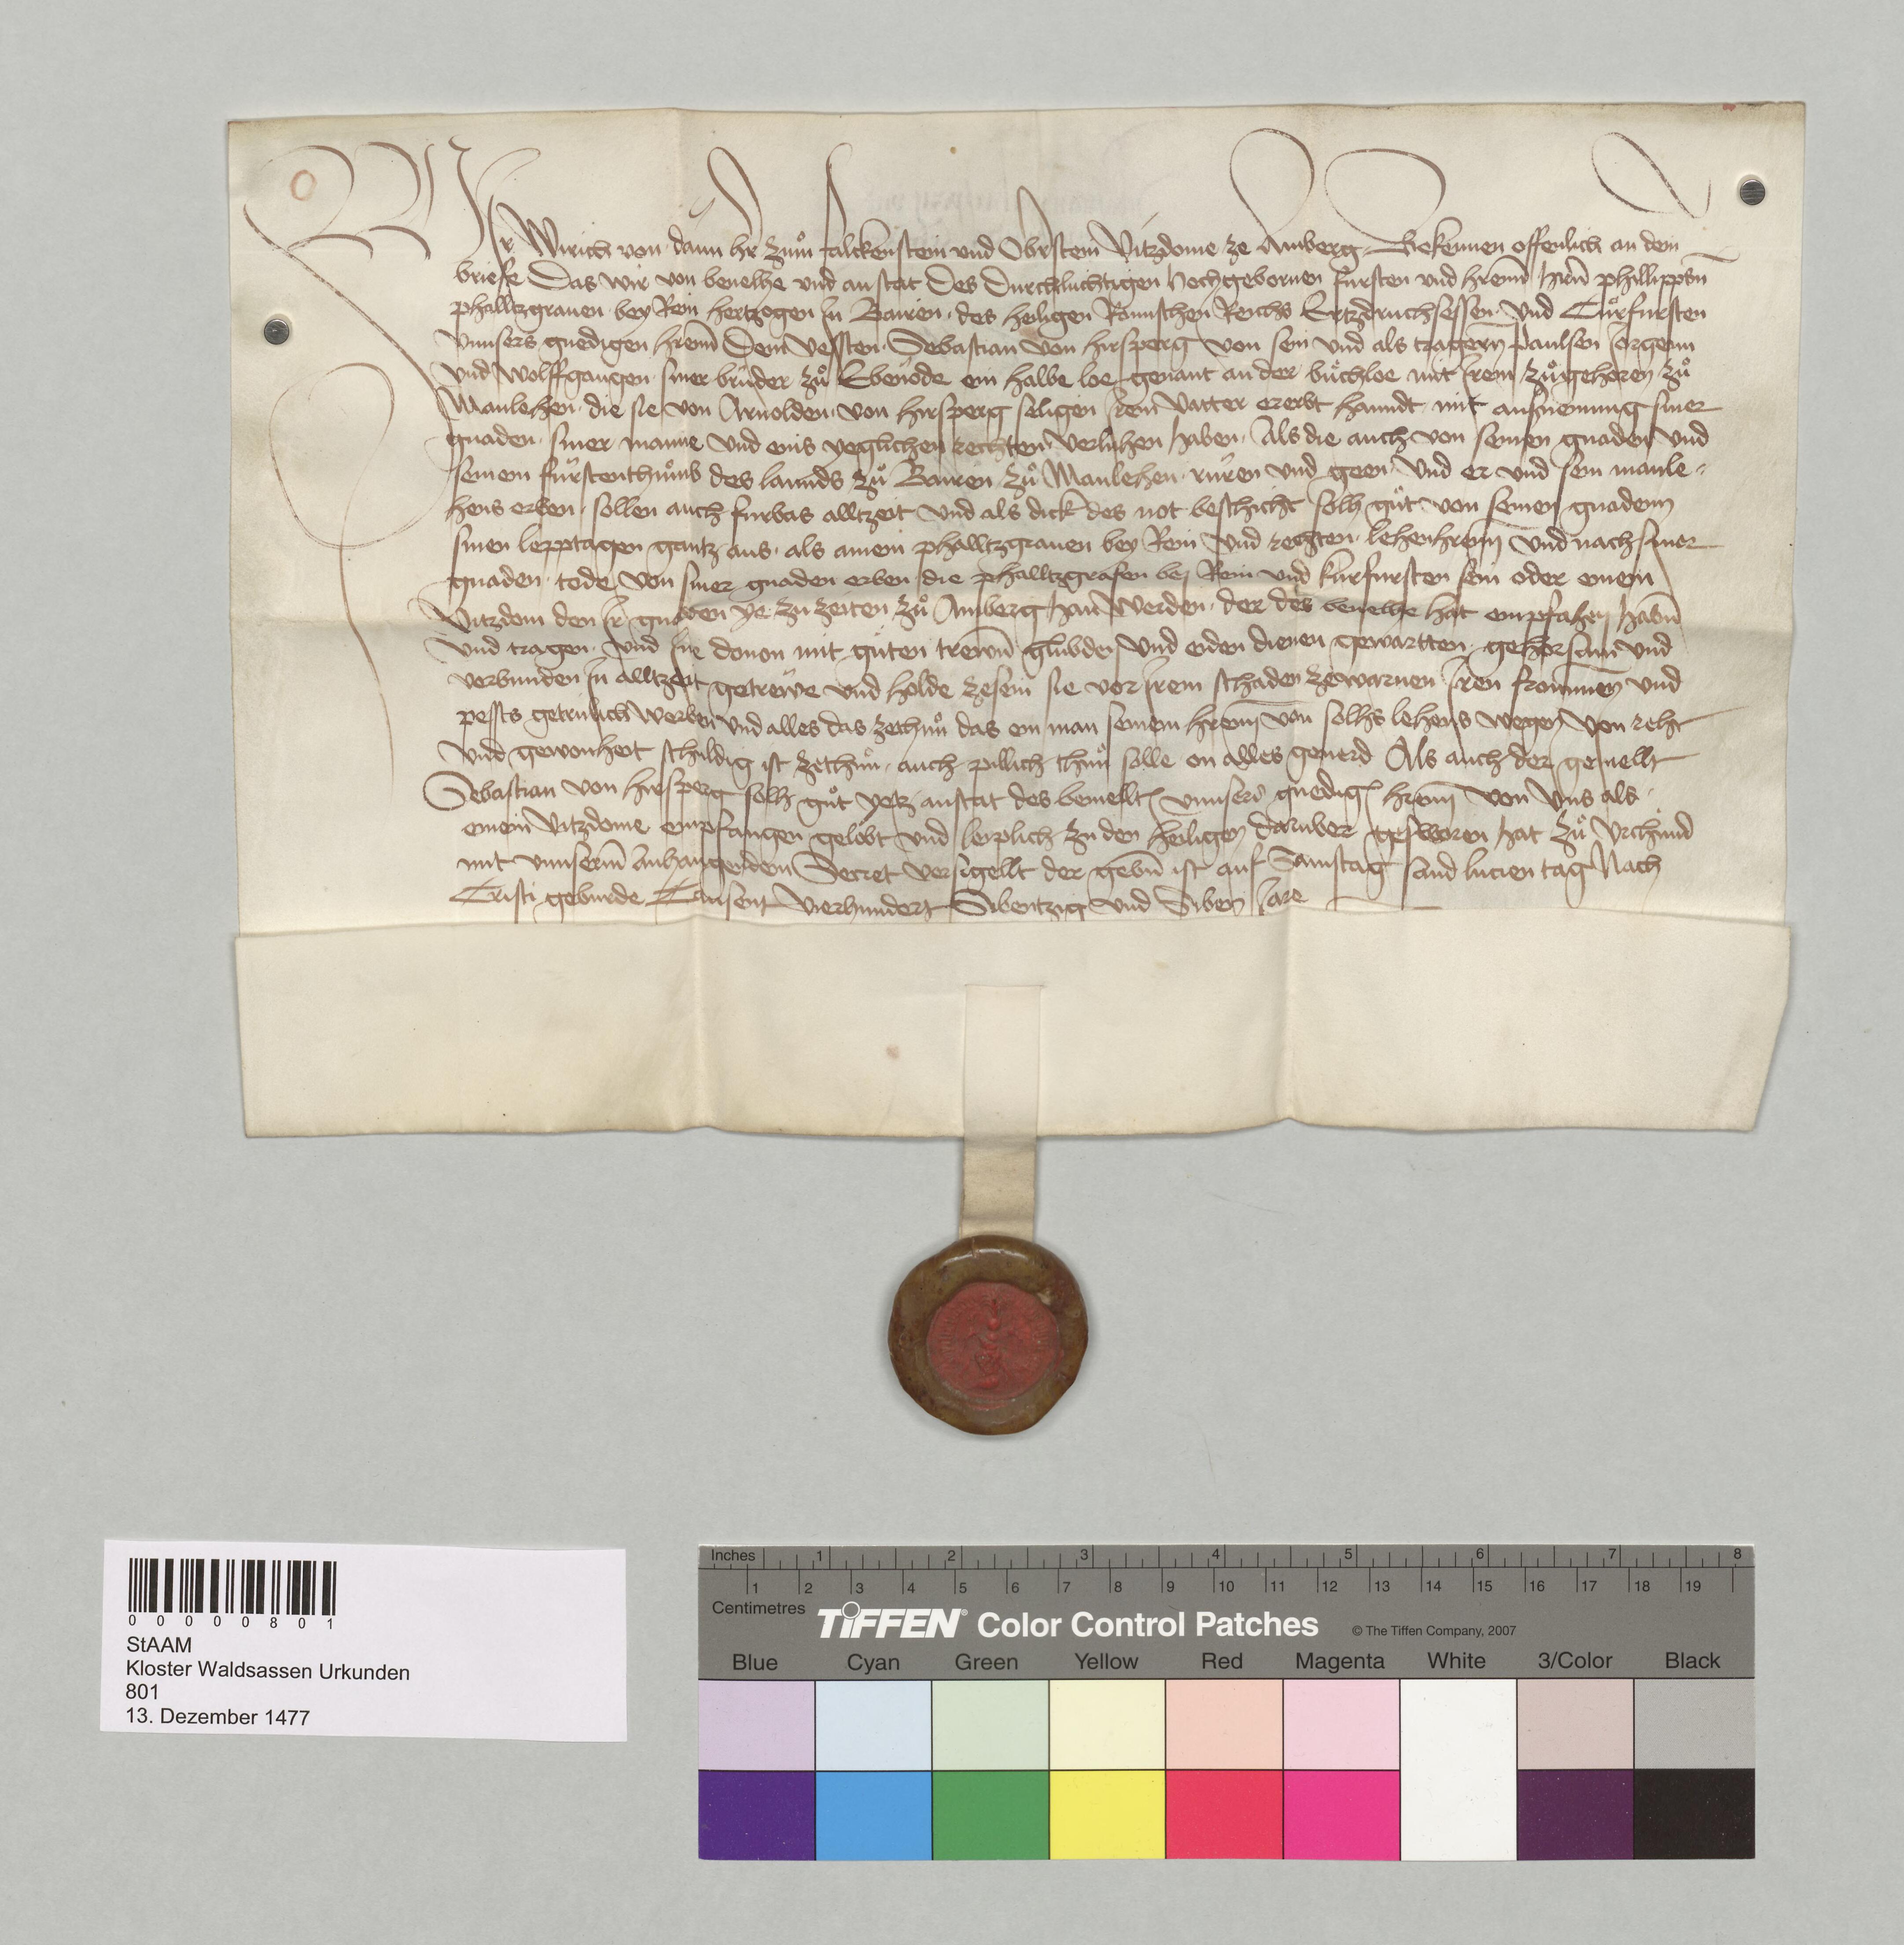 Wir Wirich von daun hr zum falckenstein und Obrstem Vitzdome ze Amberg Bekennen offenlich an dem
briefe Das wir von beuelhe und anstat Des Durchluchtigen Hochgebornen fursten und hrenn hrn phillippsn
phalltzgrauen bey Rein hertzogen Jn Bairen des heiligen Romischen Reichs Ertzdruchsessen und Curfursten
Unnsers gnedigen hrenn Dem Vessten Sebastian von hirsperg von sein und als tragern paulsen Jorgenn
und Wolffgangen siner bruder zu Ebenode ein halbe loe genant an der buchloe mit Jrem zugehoren zu
Manlehen die sie von Arnolden von hirsperg seligen Jrem Vatter ererbt hanndt mit ausnemung siner
gnaden siner manne und eins yeglichen rechten verlihen haben Als die auch von seinen gnaden und
seinem furstenthumb des lannds zu Bairen zu Manlehen ruren und geen und er und sein manle-
hens erben sollen auch furbas alltzeit und als dick des not beschicht solh gut von seinen gnaden
sinen lepptagen gantz aus als ainem phalltzgrauen bey Rein und rechten lehenhrenn und nach siner
gnaden tode von siner gnaden erben die phalltzgrafen bej Rein und kurfursten sein oder einem
Vitzdom den Jr gnaden ye zu zeiten zu Amberg han werden der des beuelhe hat empfahen habn
und tragen und Jne douon mit guten trewn glubden und eiden dienen gewartten gehorsam und
verbunden Jn alltzeit getrewe und holde zesein sie vor Jrem schaden zewarnen Jren frommen und
pessts getrulich werben und alles das zethun das ein man seinem hrenn von solhs lehens wegen von reht
und gewonheit schuldig ist zethun auch pillich thun solle on alles geuerd Als auch der gemellt
Sebastian von hirsperg solh gut yetz anstat des bemellten unnsers gnedigen hrenn von uns als
einem Vitzdome empfangen gelobt und leiplich zu den heiligen daruber gesworen hat zu Urchund
mit unnserm anhangenden Secret versigellt der gebn ist auf Samstag sand lucien tag Nach
Cristi geburde Tausent Vierhundert Sibentzig und Siben Jare
00000801
StAAM
Kloster Waldsassen Urkunden
801
13. Dezember 1477
Inches 1 2 3 4 5 6 7 8
1 2 3 4 5 6 7 8 9 10 11 12 13 14 15 16 17 18 19
Centimetres
TIFFEN® Color Control Patches © The Tiffen Company, 2007
Blue Cyan Green Yellow Red Magenta White 3/Color Black